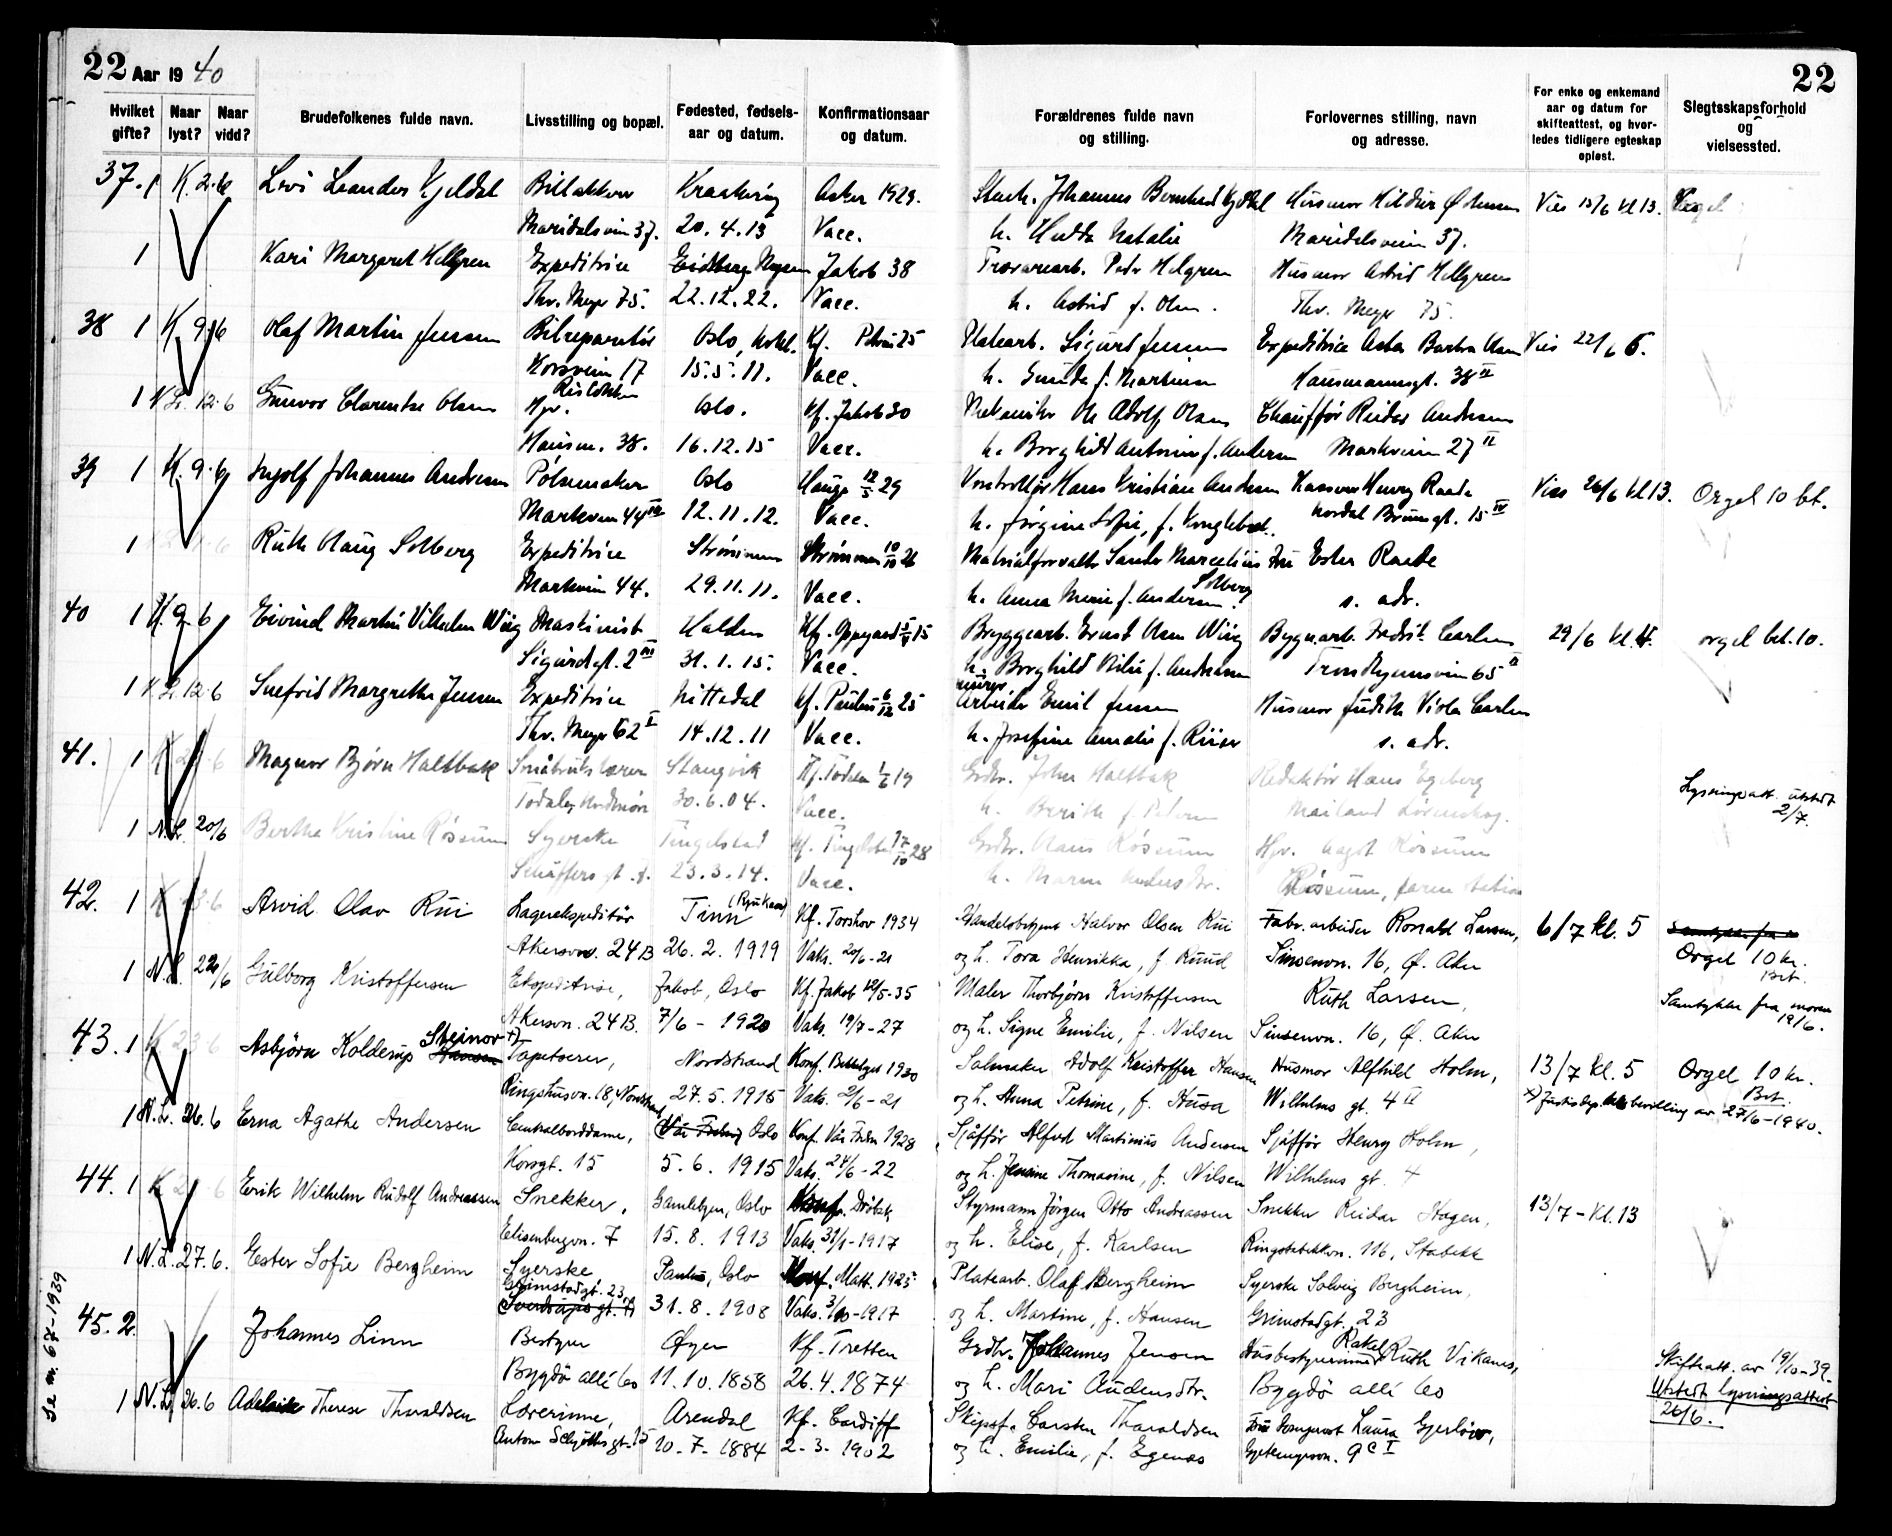 22 Aar 1940
22
Hvilket gifte?
Naar lyst?
Naar vidd?
Brudefolkenes fulde navn.
Livsstilling og bopæl.
Fødested, fødsels-
aar og datum.
Konfirmationsaar
og datum.
Forældrenes fulde navn
og stilling.
Forlovernes stilling, navn
og adresse.
For enke og enkemand
aar og datum for
skifteattest, og hvor-
ledes tidligere egteskap
opløst.
Slegtsskapsforhold
og
vielsessted.
37. 1 K. 2.6 Levi Leander Kjeldal Asker 1929. Johannes Bernhard Husmor Vies 15/6 kl 13.
Maridalsvein 37. 20.4.13 Vacc. h. Hulda Natalie Maridalsveien 37.
1 Kari Margaret Hellgren Expeditrise Jakob 38 Husmor Astrid Hellgren
Thv. Meyer 75. 22.12.22. Vacc. h. Astrid f. Olsen. Thv. Meyer 75.
38 1 K. 9/6 Olaf Martin Jensen Bilreparatør Oslo Kf. 25 Sigurd Jensen Expeditrice Vies 22/6 5.
Korsvein 17 15.5.11. Vacc. h. Gunda f. Martinsen Hausmannsgt. 38 II
1 N.L. 12.6 Gunvor Olsen Hjv. Oslo. Kf. Jakob 30 Mekaniker Ole Adolf Olsen Chauffør Reidar Andersen
Hausm. 38. 16.12.15 Vacc. h. Borghild Antonie f. Andersen Markveien 27 II
39 1 K. 9.6 Ingolf Johannes Andresen Pølsemaker Oslo Hauge 12/5 29 Kontrollør Hans Kristian Andersen Henry Raade Vies 26/6 kl 13. Orgel 10 bt.
Markveien 44 12.11.12. Vacc. h. Jørgine Sofie, f. Nordal Brunsgt. 15 IV
1 Ruth Olaug Solberg Expeditrice Strømmen Strømmen 10/10 26 Fru Ester Raade
Markveien 44. 29.11.11. Vacc. h. Anna Marie f. Andersen. Solberg s. adr.
40 1 K. 9.6 Eivind Martin Vilhelm Wiig Maskinist Halden Kf. Oppegaard 15 Bryggearb. Ernst Wiig Bygn.arb. Carlsen 29/6 kl. 4. orgel bet. 10.
Sigurdsgt. 2 III 31.1.15. Vacc. h. Borghild f. Andresen Trondhjemsveien 65 II
1 N.L. 12.6 Snefrid Margrethe Jensen Expeditrice Nittedal Kf. Paulus 6/12 25 murer Arbeider Emil Jensen Husmor Judith Viola Carlsen
Thv. Meyer 62 I 14.12.11 Vacc. h. Josefine Amalie f. Riiser s. adr.
41. 1 K 6 Magnor Bjørn Haltbak Småbrukslærer Stangvik 19 Grdbr. John Haltbak Redaktør Hans Egeberg
Todalen Nordmøre 30.6.04. Vacc. h. Berith f. Mailand Lørenskog.
Lysningsatt. utstedt 2/7.
1 N.L. 20/6 Bertha Kristine Røssum Syerske Tingelstad Kf. Tingelstad 28 Grdbr. Hans Røssum Hjv. Røssum
Schäffers gt. 8. 23.3.14. Vacc. h. Maren Andersdtr. Røssum,
42. 1 K 6 Arvid Olav Rui Lagerekspeditør Tinn (Rjukan) Kf. Torshov 1934 Handelsbetjent Halvor Olsen Rui Fabr. arbeider Ronald Larsen, 6/7 kl. 5
Akersvn. 24 B 26.2.1919 Vaks. 20/6-21 og h. Tora Henrikka, f. Ruud Sinsenvn. 16, Ø. Aker Orgel 10 kr. Bet.
1 N.L. 22/6 Gulborg Kristoffersen Ekspeditrise, Jakob, Oslo Kf. Jakob 12/5-35 Maler Thorbjørn Kristoffersen Ruth Larsen, Samtykke fra moren 19/6.
Akersvn. 24 B. 7/6-1920 Vaks. 19/7-27 og h. Signe Emilie, f. Nilsen Sinsenvn. 16, Ø. Aker
43. 1 K 23 6 Asbjørn Kolderup Steinov Hansen x) Tapetserer, Nordstrand Konf. 1930 Salmaker Adolf Kristoffer Hansen Husmor Alfhild Holm, 13/7 kl. 5 Orgel 10 kr. Bet.
Ringshusvn. 18, Nordstrand 27.5.1915 Vaks. 2/6-21 og h. Anna Petrine, f. Husa Wilhelms gt. 4 II x) Justisdep. bevilling av 27/6-1940.
1 N.L. 26.6 Erna Agathe Andersen Centralborddame, (Vår Frelser) Oslo Konf. Vår Frelser 1928 Sjåffør Alfred Martinius Andersen Sjåffør Henry Holm,
Korsgt. 15 5.6.1915 Vaks. 24/6-22 og h. Jensine Thomasine, f. Nilsen Wilhelms gt. 4
44. 1 K 6 Erik Wilhelm Rudolf Andreassen Snekker, Gamlebyen, Oslo Konf. Drøbak Styrmann Jørgen Otto Andreassen Snekker Reidar Hagen, 13/7-kl. 13
Elisenbergvn. 7 15.8.1913 Vaks. 31/1-1917 og h. Elise, f. Karlsen Ringstabekkvn. 116, Stabekk
1 N.L. 27.6. Ester Sofie Bergheim Syerske Paulus, Oslo Konf. Matt. 1923 Platearb. Olaf Bergheim Syerske Solveig Bergheim,
Grimstadgt. 23 Sverdrupsgt. 31.8.1908 Vaks. 3/10-1917 og h. Martine, f. Hansen Grimstadgt. 23
45. 2. Johannes Linn Bestyrer Øyer Kf. Tretten Grdbr. Johannes Jensen Husbestyrerinne Rakel Ruth Vikanes, Skifteatt. av 19/10-39.
Bygdø allé 60 11.10.1858 26.4.1874 og h. Mari Audensdtr. Bygdø allé 60 Utstedt lysningsattest 26/6.
1 N.L. 26.6 Adelaide Therese Tharaldsen Lærerinne, Arendal Kf. Cardiff Skipsf. Carsten Tharaldsen Fru Laura Gjerløw,
Anton Schjøthsgt. 15 10.7.1884 2.3.1902 og h. Emilie, f. Egenæs 9 c I
Se m. 67-1939